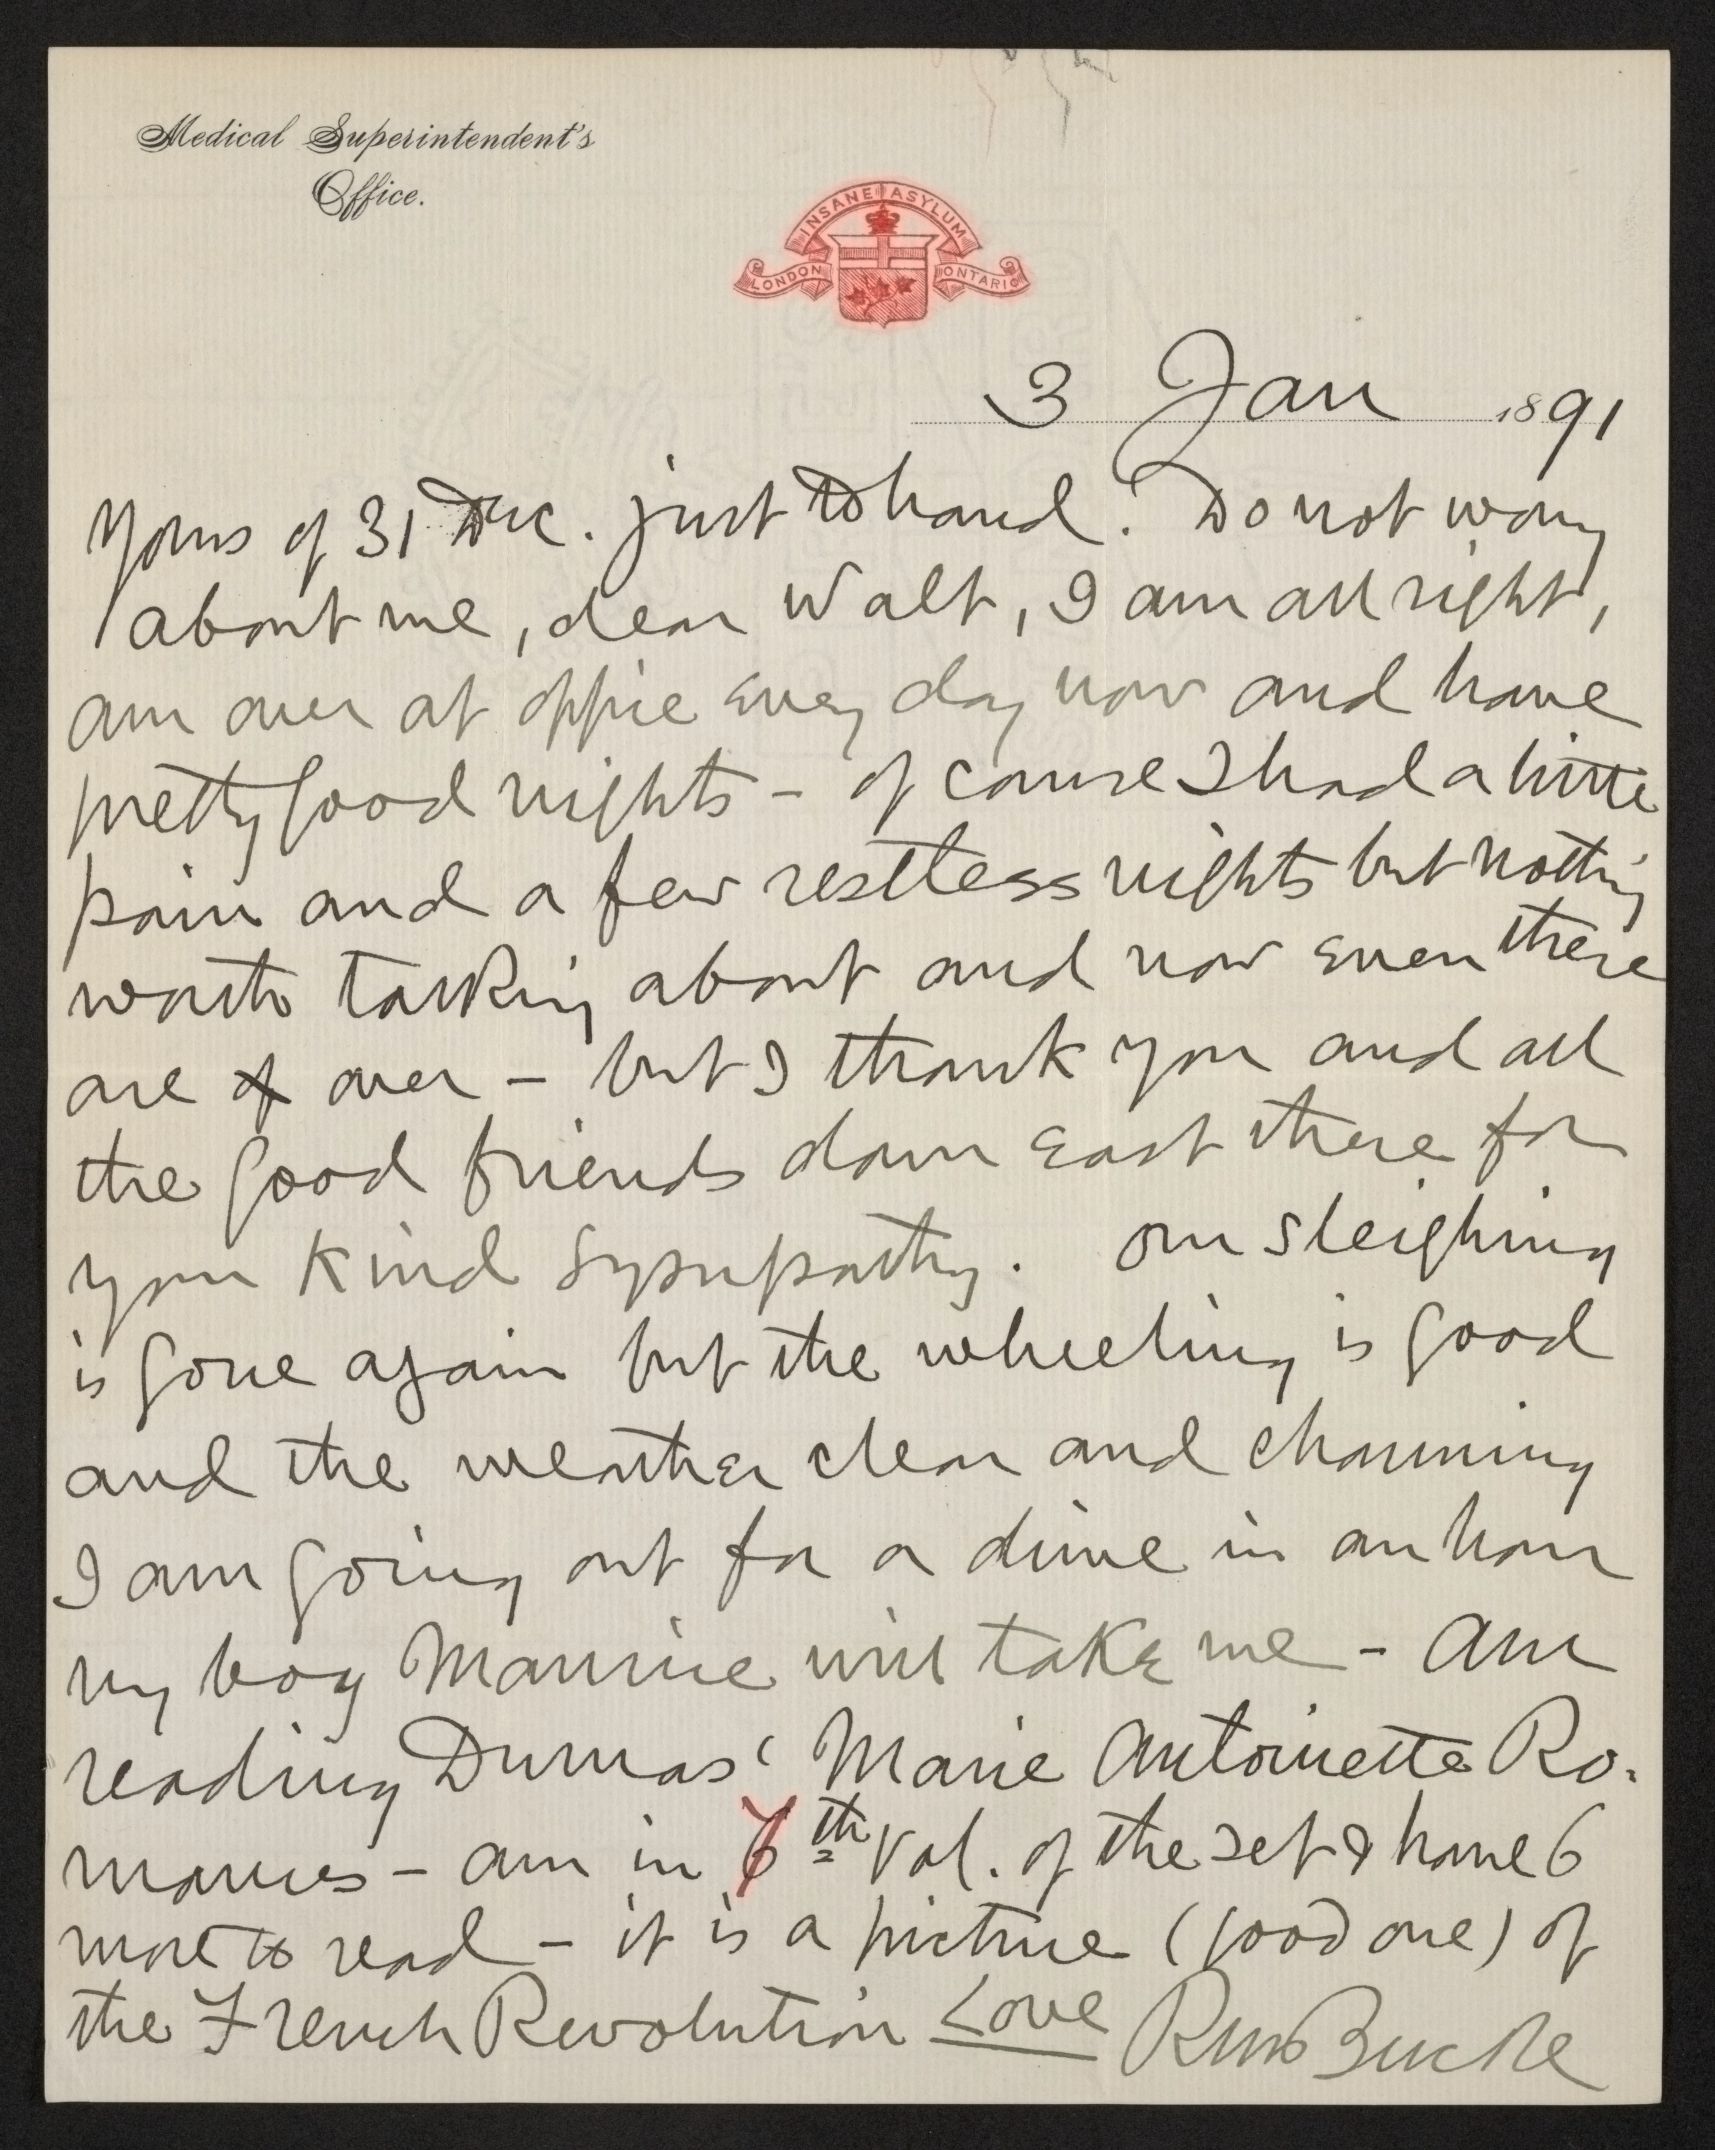 Medical Superintendent's
Office.
INSANE ASYLUM
LONDON ONTARIO
3 Jan 1891
Yours of 31 Dec. just to hand. Do not worry
about me, dear Walt, I am all right,
am over at office every day now and have
pretty good nights – of course I had a little
pain and a few restless nights but nothing
worth talking about and now even these
are of over – but I thank you and all
the good friends down East there for
your kind sympathy. Our sleighing
is gone again but the wheeling is good
and the weather clear and charming
I am going out for a drive in an hour
my boy Maurice will take me – Am
reading Dumas' Marie Antoinette Ro-
mances – am in 6th vol. of the set & have 6
more to read – it is a picture (good one) of
the French Revolution Love RM Bucke